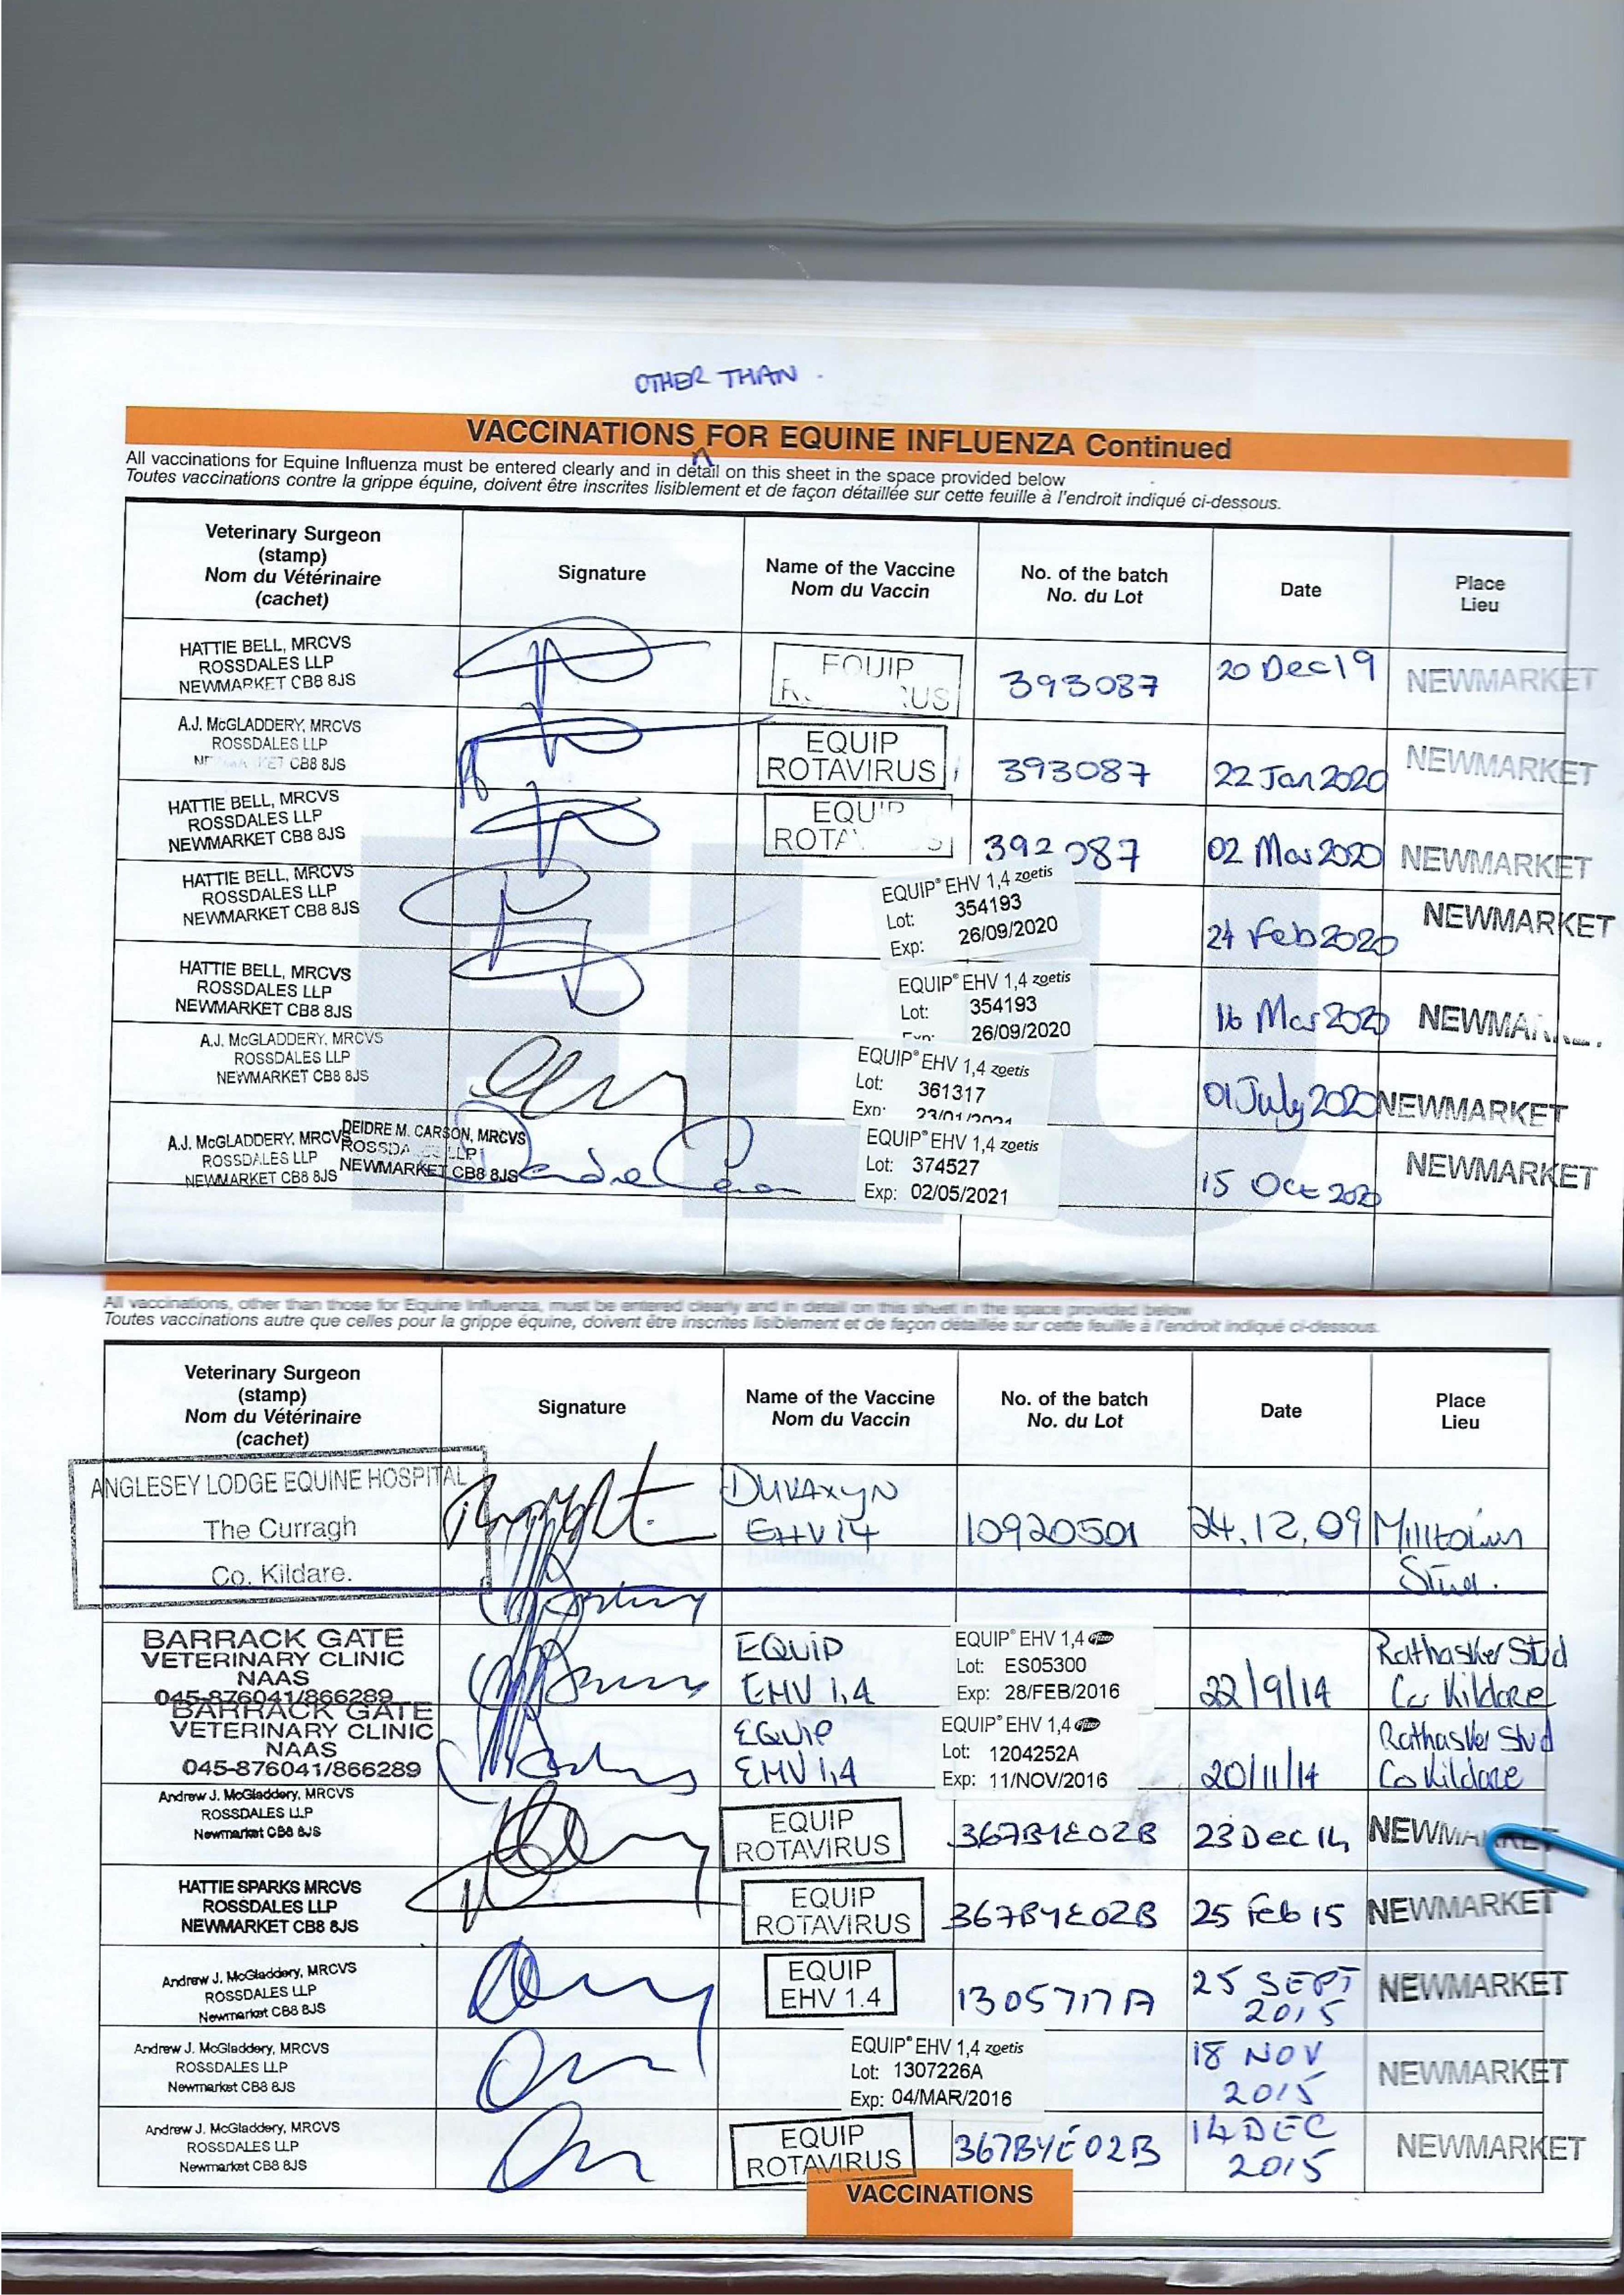 OTHER THAN .
VACCINATIONS FOR EQUINE INFLUENZA Continued
All vaccinations for Equine Influenza must be entered clearly and in detail on this sheet in the space provided below
Toutes vaccinations contre la grippe équine, doivent être inscrites lisiblement et de façon détaillée sur cette feuille à l'endroit indiqué ci-dessous.
Veterinary Surgeon
(stamp)
Nom du Vétérinaire
(cachet)
Signature
Name of the Vaccine
Nom du Vaccin
No. of the batch
No. du Lot
Date
Place
Lieu
HATTIE BELL, MRCVS
ROSSDALES LLP
NEWMARKET CB8 8JS
EQUIP
393087
20 Dec 19
NEWMARKET
A.J. McGLADDERY, MRCVS
ROSSDALES LLP
CB8 8JS
EQUIP
ROTAVIRUS
393087
22 Jan 2020
NEWMARKET
HATTIE BELL, MRCVS
ROSSDALES LLP
NEWMARKET CB8 8JS
EQUIP
392087
02 Mar 2020
NEWMARKET
HATTIE BELL, MRCVS
ROSSDALES LLP
NEWMARKET CB8 8JS
EQUIP® EHV 1,4 zoetis
Lot: 354193
Exp: 26/09/2020
24 Feb 2020
NEWMARKET
HATTIE BELL, MRCVS
ROSSDALES LLP
NEWMARKET CB8 8JS
EQUIP® EHV 1,4 zoetis
Lot: 354193
Exp: 26/09/2020
16 Mar 2020
A.J. McGLADDERY, MRCVS
ROSSDALES LLP
NEWMARKET CB8 8JS
EQUIP® EHV 1,4 zoetis
Lot: 361317
Exp: 23/01/2021
01 July 2020
NEWMARKET
A.J. McGLADDERY, MRCVS
ROSSDALES LLP
NEWMARKET CB8 8JS
DEIDRE M. CARSON, MRCVS
LLP
NEWMARKET CB8 8JS
EQUIP® EHV 1,4 zoetis
Lot: 374527
Exp: 02/05/2021
15 Oct 2020
NEWMARKET
FLU
All vaccinations, other than those for Equine Influenza, must be entered clearly and in detail on this sheet in the space provided below
Toutes vaccinations autre que celles pour la grippe équine, doivent être inscrites lisiblement et de façon détaillée sur cette feuille à l'endroit indiqué ci-dessous.
Veterinary Surgeon
(stamp)
Nom du Vétérinaire
(cachet)
Signature
Name of the Vaccine
Nom du Vaccin
No. of the batch
No. du Lot
Date
Place
Lieu
ANGLESEY LODGE EQUINE HOSPITAL
The Curragh
Co. Kildare.
DUVAXYN
EHV 14
10920501
24.12.09
Milltown
Stud.
BARRACK GATE
VETERINARY CLINIC
NAAS
045-876041/866289
EQUIP
EHV 1,4
EQUIP® EHV 1,4 Pfizer
Lot: ES05300
Exp: 28/FEB/2016
22/9/14
Rathasker Stud
Co Kildare
BARRACK GATE
VETERINARY CLINIC
NAAS
045-876041/866289
EQUIP
EHV 1,4
EQUIP® EHV 1,4 Pfizer
Lot: 1204252A
Exp: 11/NOV/2016
20/11/14
Rathasker Stud
Co Kildare
Andrew J. McGladdery, MRCVS
ROSSDALES LLP
Newmarket CB8 8JS
EQUIP
ROTAVIRUS
367BYE02B
23 Dec 14
NEWMARKET
HATTIE SPARKS MRCVS
ROSSDALES LLP
NEWMARKET CB8 8JS
EQUIP
ROTAVIRUS
367BYE02B
25 Feb 15
NEWMARKET
Andrew J. McGladdery, MRCVS
ROSSDALES LLP
Newmarket CB8 8JS
EQUIP
EHV 1.4
1305717A
25 SEPT
2015
NEWMARKET
Andrew J. McGladdery, MRCVS
ROSSDALES LLP
Newmarket CB8 8JS
EQUIP® EHV 1,4 zoetis
Lot: 1307226A
Exp: 04/MAR/2016
18 NOV
2015
NEWMARKET
Andrew J. McGladdery, MRCVS
ROSSDALES LLP
Newmarket CB8 8JS
EQUIP
ROTAVIRUS
367BYE02B
14 DEC
2015
NEWMARKET
VACCINATIONS